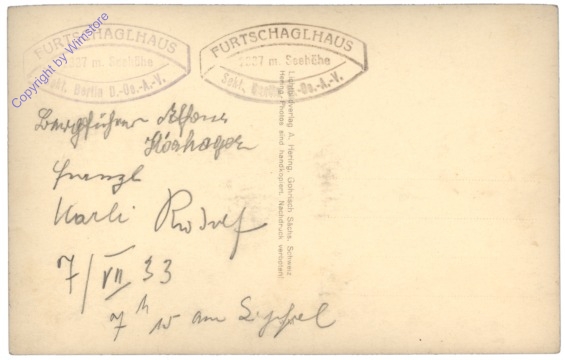 Copyright by Winstore
FURTSCHAGLHAUS
2337 m. Seehöhe
Sekt. Berlin D.-Oe.-A.-V.
FURTSCHAGLHAUS
2337 m. Seehöhe
Sekt. Berlin D.-Oe.-A.-V.
Bergführer Alfons
Hörhager
Karli Rudolf
7/VII 33
7 h 15 am Gipfel
Lichtbildverlag A. Hering, Gohrisch Sächs. Schweiz
Hering-Photos sind handkopiert. Nachdruck verboten!